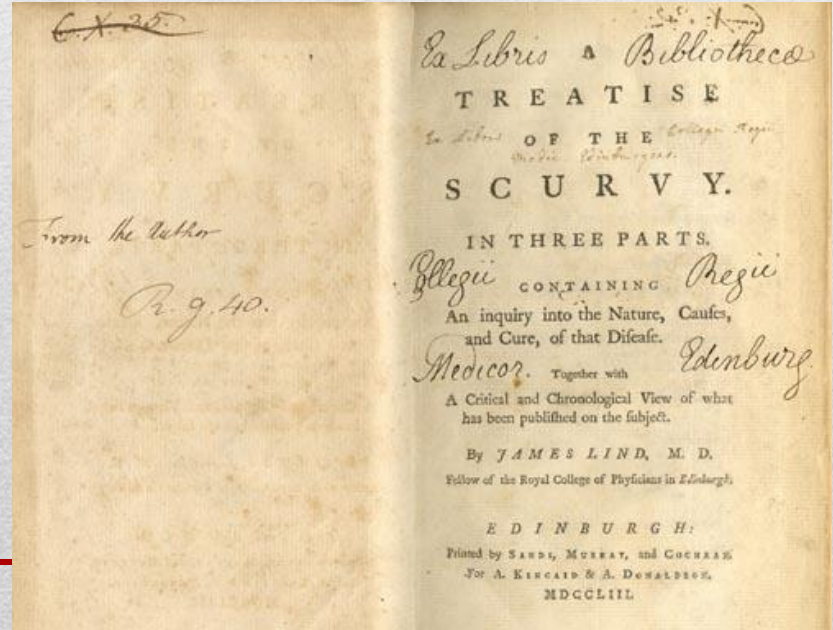 C. X. 25.
From the Author
R. g. 40.
Ex Libris A Bibliotheca
TREATISE
Ex Libris OF THE Collegii Regii
SCURVY.
IN THREE PARTS.
Collegii CONTAINING Regii
An inquiry into the Nature, Cauſes,
and Cure, of that Diſeaſe.
Medicor. Together with Edinburg.
A Critical and Chronological View of what
has been publiſhed on the ſubject.
By JAMES LIND, M. D.
Fellow of the Royal College of Phyſicians in Edinburgh.
EDINBURGH:
Printed by SANDS, MURRAY, and COCHRAN.
For A. KINCAID & A. DONALDSON.
MDCCLIII.